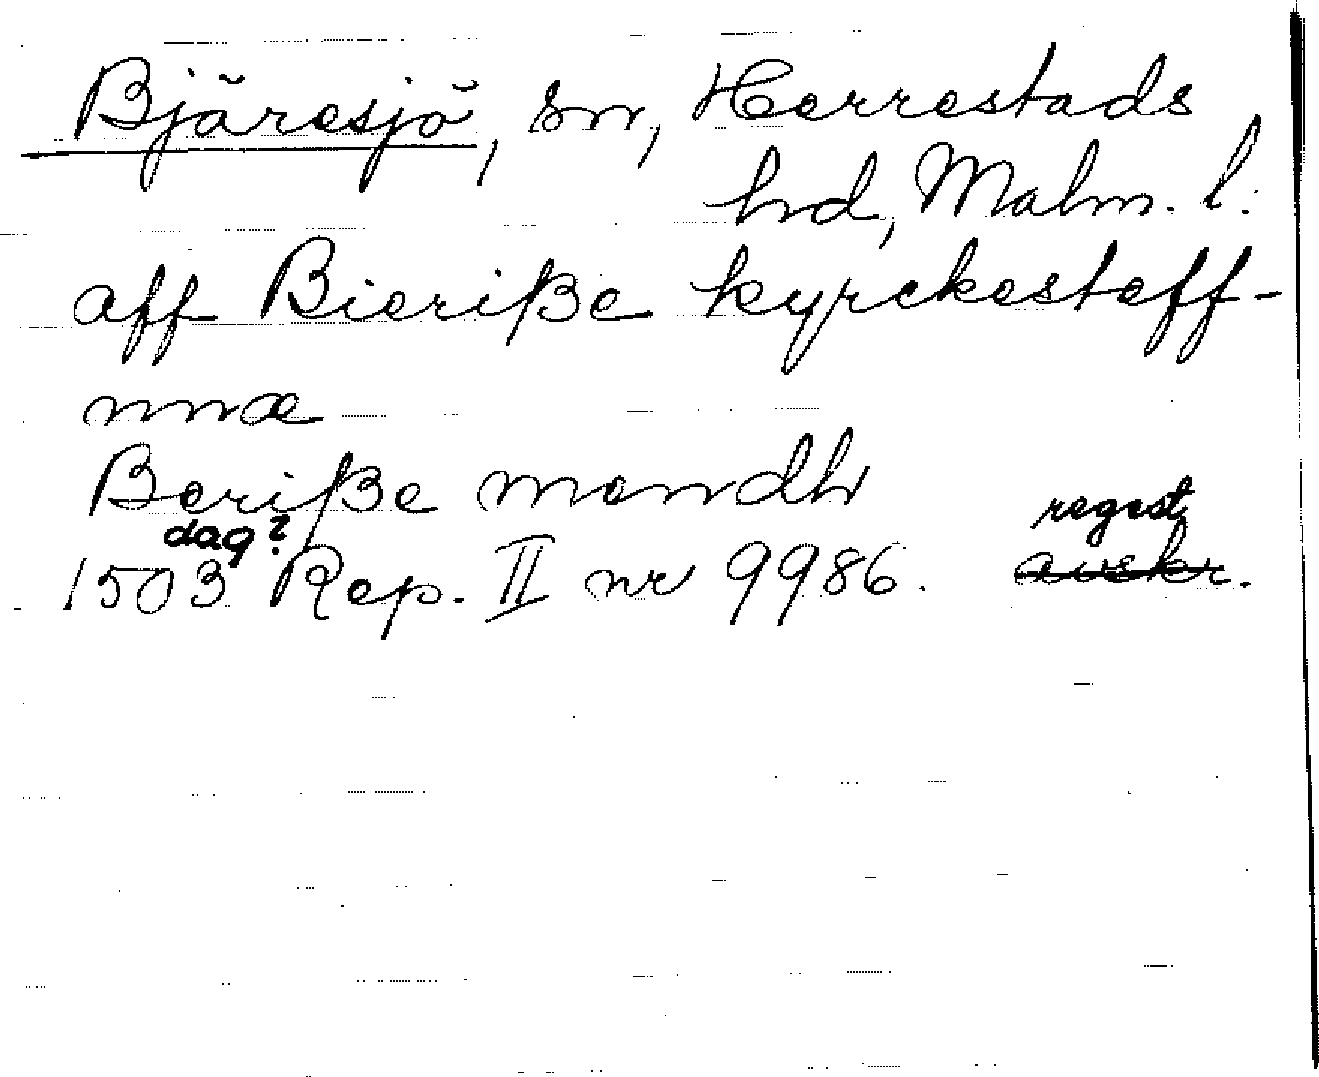 Bjäresjö, sn, Herrestads
hd, Malm. l.
aff Bieriße kyrckesteff-
nnæ
Beriße mendh
dag? regest.
1503 Rep. II nr 9986. avskr.